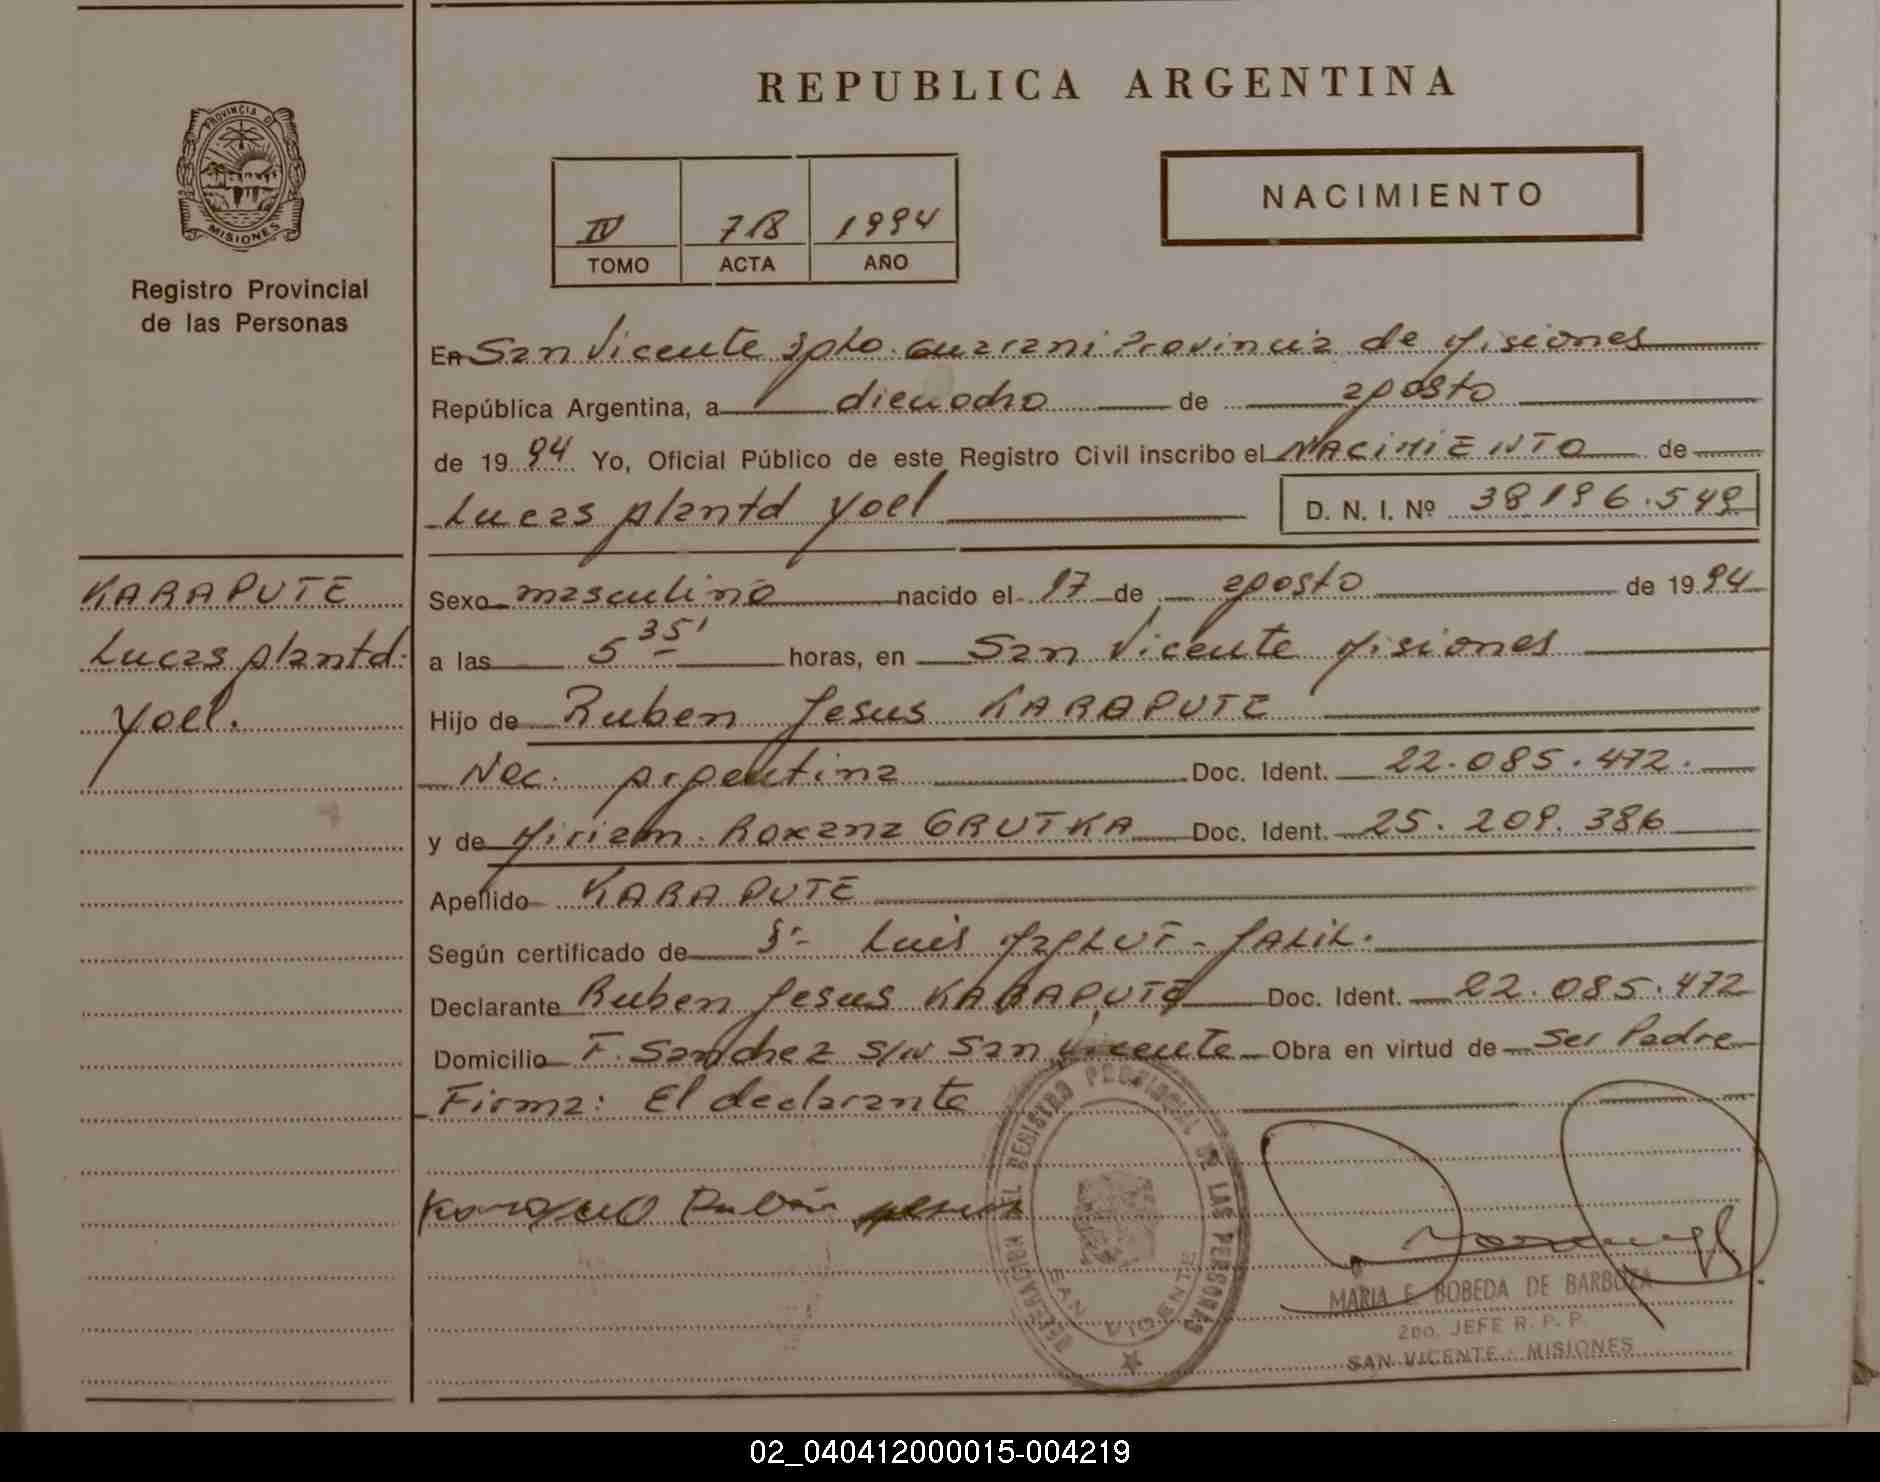 REPUBLICA ARGENTINA
PROVINCIA DE
MISIONES
Registro Provincial
de las Personas
IV 718 1994
TOMO ACTA AÑO
NACIMIENTO
En San Vicente Dpto. Guarani Provincia de Misiones
República Argentina, a dieciocho de agosto
de 1994 Yo, Oficial Público de este Registro Civil inscribo el NACIMIENTO de
Lucas Yoel
D. N. I. Nº 38196.549
KARAPUTE
Lucas
Yoel.
Sexo masculino nacido el 17 de agosto de 1994
a las 5 35' horas, en San Vicente Misiones
Hijo de Ruben Jesus KARAPUTE
Nac. Argentina Doc. Ident. 22.085.472.
y de Miriam Roxana GRUTKA Doc. Ident. 25.209.386
Apellido KARAPUTE
Según certificado de Luis
Declarante Ruben Jesus KARAPUTE Doc. Ident. 22.085.472
Domicilio F. Sanchez S/N San Vicente Obra en virtud de Ser Padre
Firma: El declarante
Ruben
DELEGACION DEL REGISTRO PROVINCIAL DE LAS PERSONAS
SAN VICENTE
MARIA E. BOBEDA DE BARBOZA
2DO. JEFE R. P. P.
SAN VICENTE - MISIONES
02_040412000015-004219